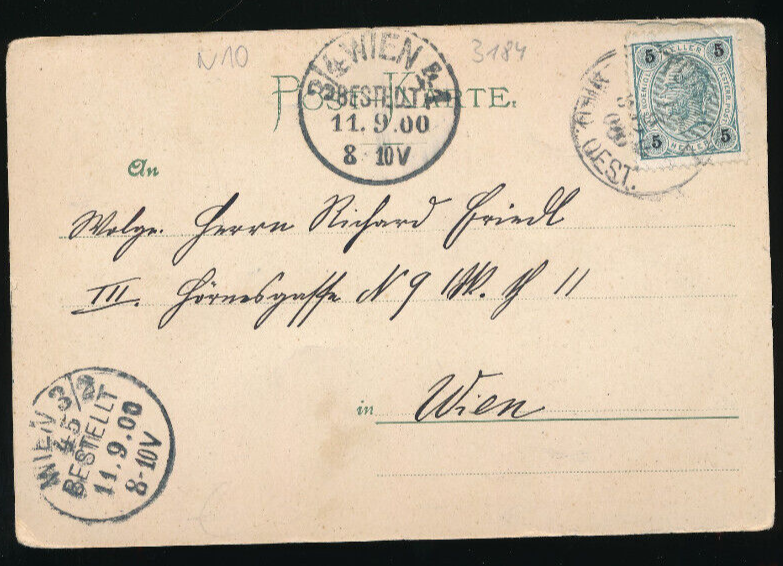 N10
3184
POSTKARTE.
WIEN
BESTELLT
11.9.00
8-10V
5 HELLER 5
5 HELLER 5
OEST.
An
Wolge. Herrn Richard Friedl
III. Hörnesgasse N 9 II 11
in Wien
WIEN 3/2
45
BESTELLT
11.9.00
8-10V